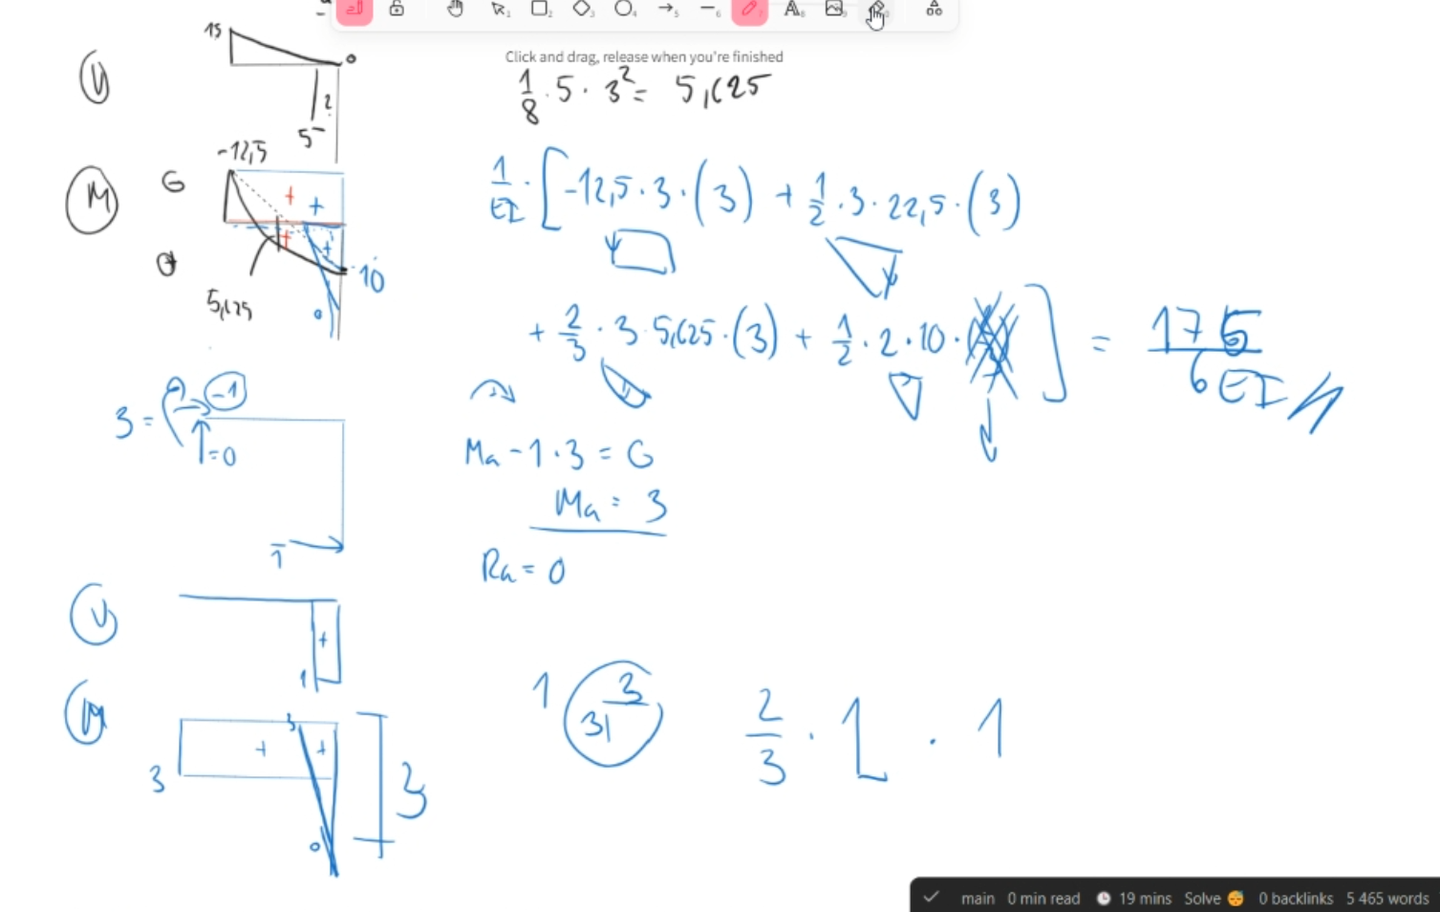 Click and drag, release when you're finished
15
0
V
2
5
1/8 · 5 · 3² = 5,625
-12,5
M
+ +
+ +
10
5,625
0
1/EI · [ -12,5 · 3 · (3) + 1/2 · 3 · 22,5 · (3)
+ 2/3 · 3 · 5,625 · (3) + 1/2 · 2 · 10 · ] = 175/6EI
-1
3 =
=0
Ma - 1 · 3 = 0
Ma = 3
Ra = 0
1
V
+
1
M
3
+ +
3
3
0
1
3
31
2/3 · 1 · 1
main 0 min read 19 mins Solve 😴 0 backlinks 5 465 words